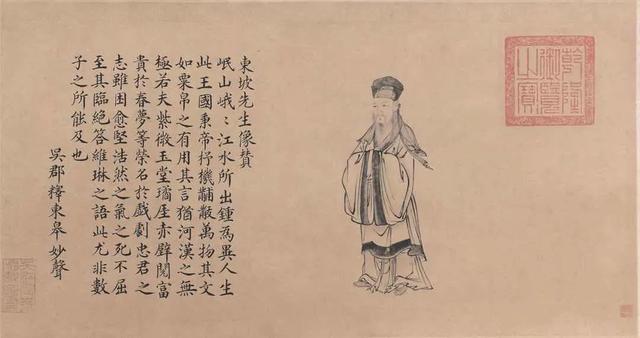 東坡先生像贊
岷山峩〻江水所出鍾為異人生
此王國秉帝杼機黼黻萬物其文
如粟帛之有用其言猶河漢之無
極若夫紫微玉堂瓊厓赤壁閱富
貴於春夢等榮名於戲劇忠君之
志雖困愈堅浩然之氣之死不屈
至其臨絕答維琳之語此尤非數
子之所能及也
吳郡釋東皋妙聲
乾隆
御覽
之寶